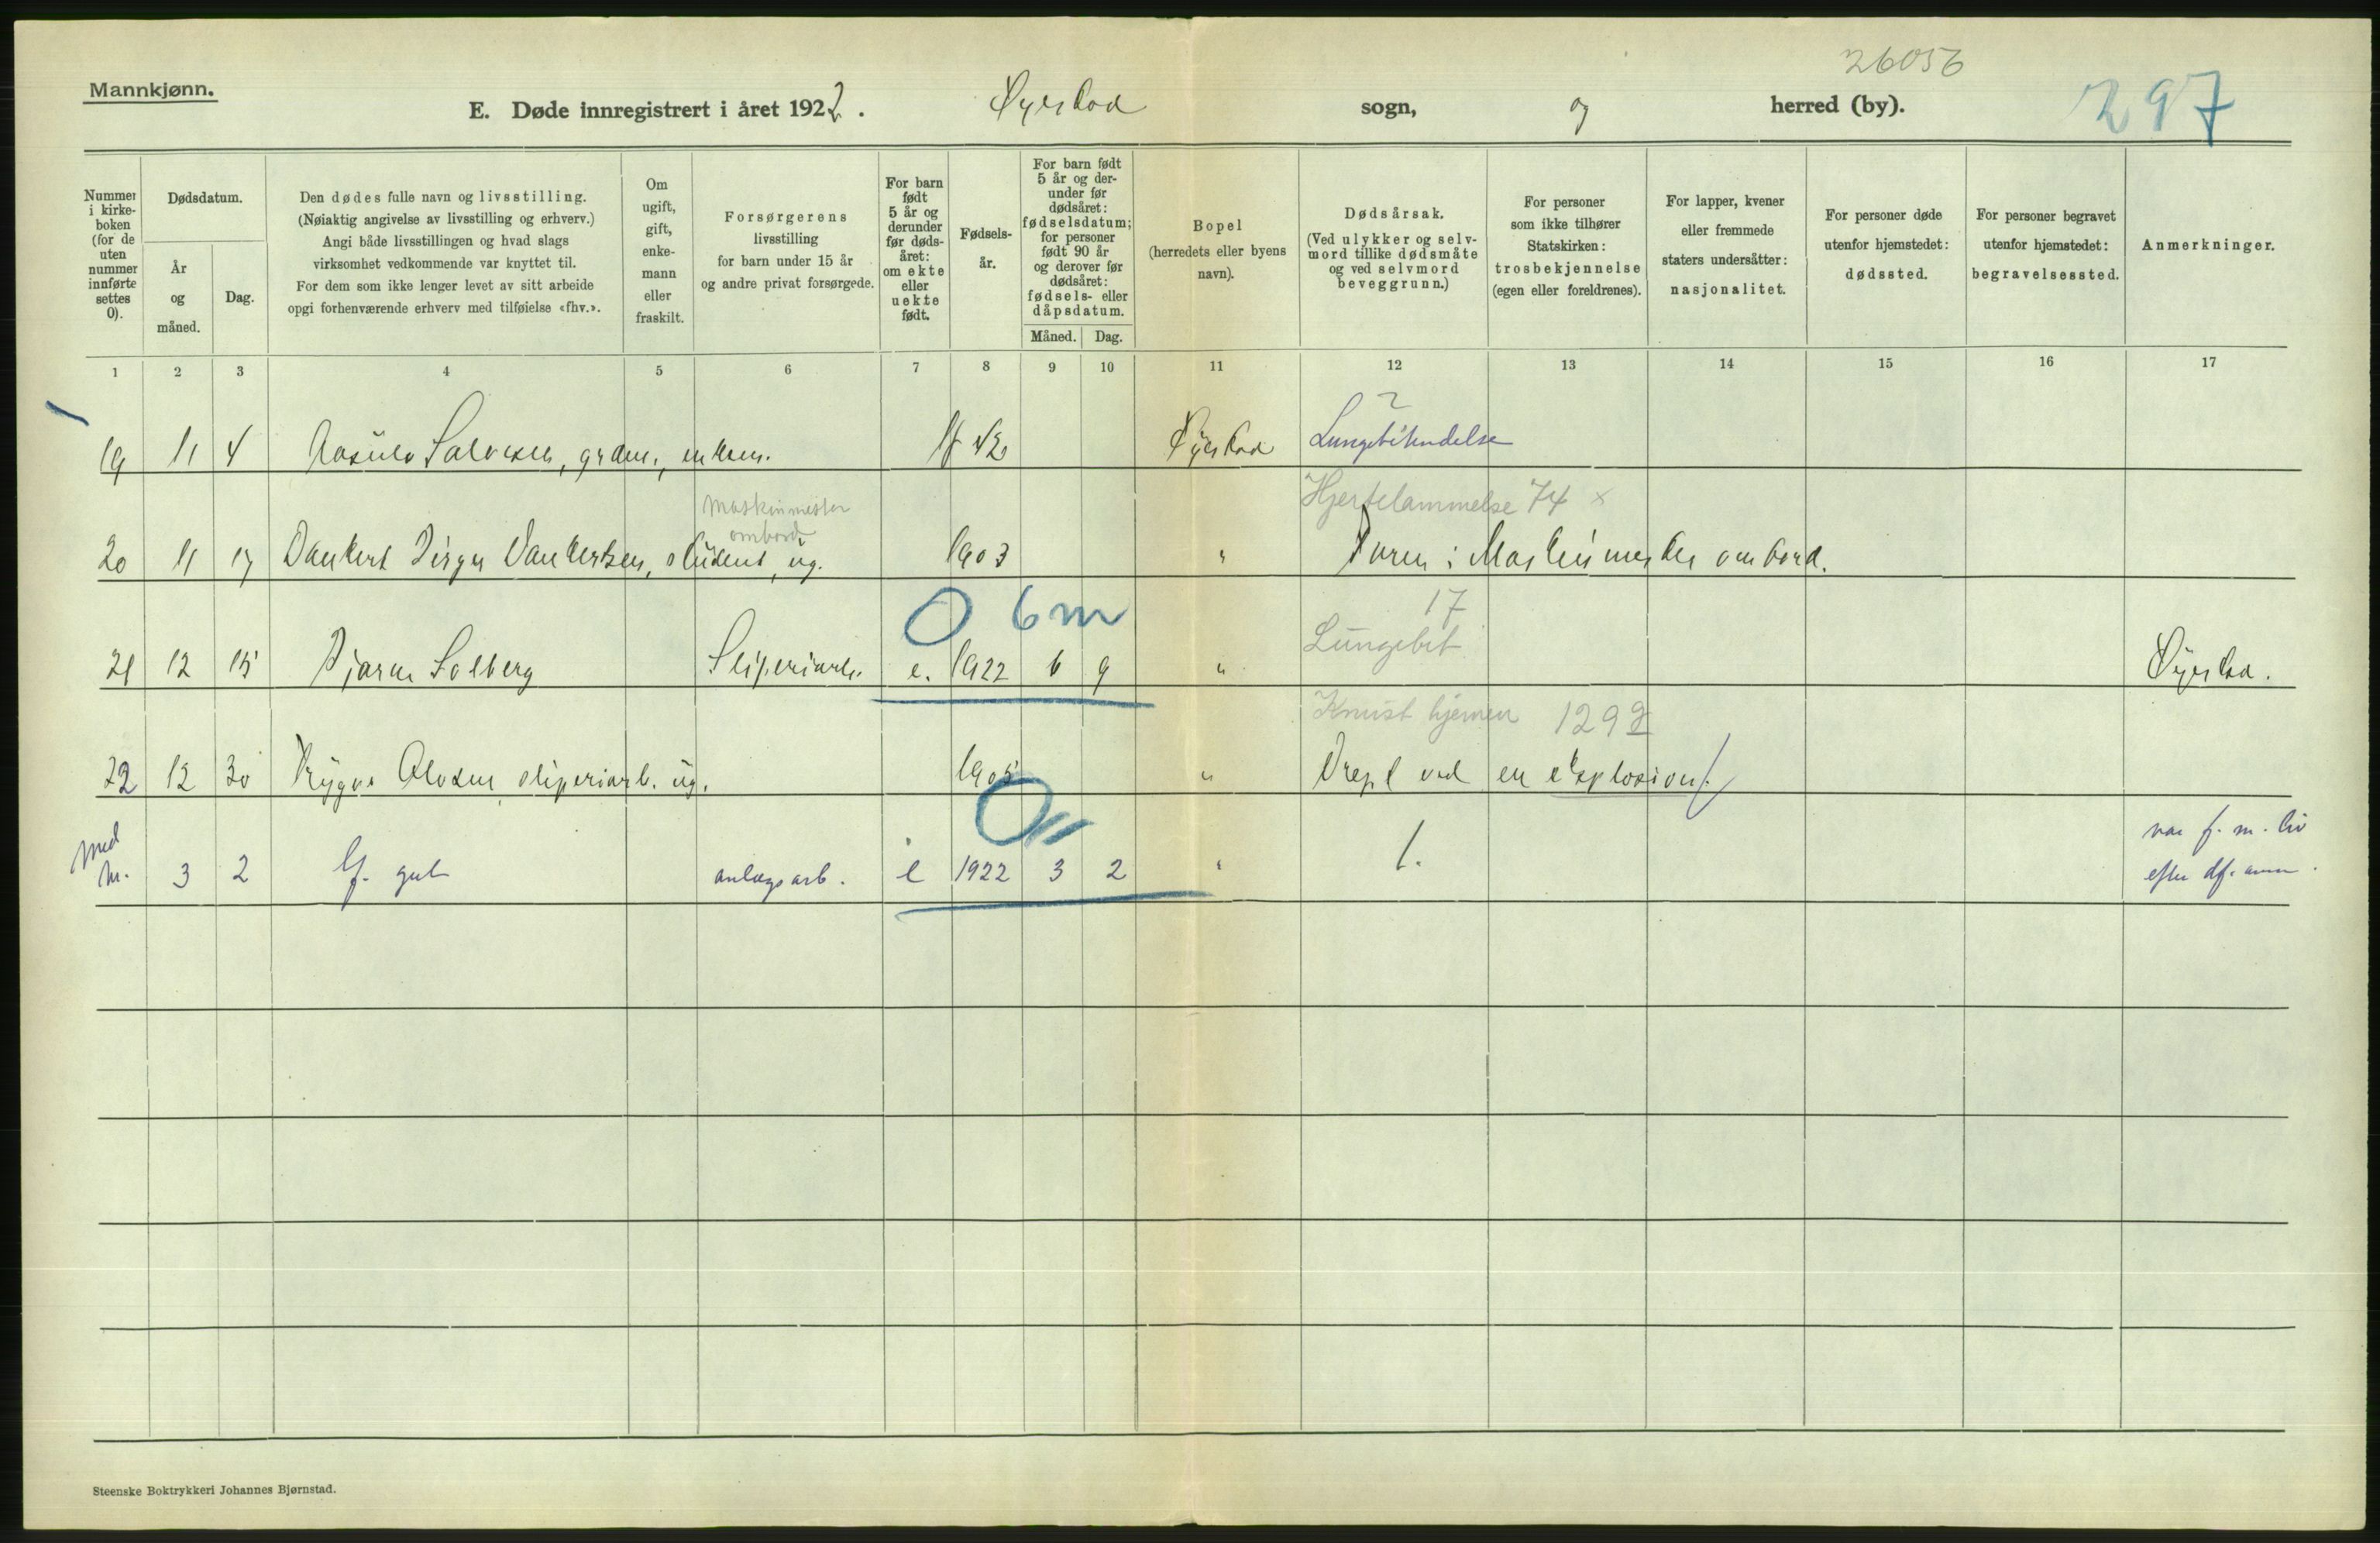 26056
297
Mannkjønn.
E. Døde innregistrert i året 1922. Øyestad sogn, og herred (by).
Nummer i kirke-boken (for de uten nummer innførte settes 0).
Dødsdatum.
År og måned.
Dag.
Den dødes fulle navn og livsstilling.
(Nøiaktig angivelse av livsstilling og erhverv.)
Angi både livsstillingen og hvad slags
virksomhet vedkommende var knyttet til.
For dem som ikke lenger levet av sitt arbeide
opgi forhenværende erhverv med tilføielse «fhv.».
Om ugift, gift, enke-mann eller fraskilt.
Forsørgerens
livsstilling
for barn under 15 år
og andre privat forsørgede.
For barn født 5 år og derunder før døds-året: om ekte eller uekte født.
Fødsels-år.
For barn født 5 år og der-under før dødsåret: fødselsdatum; for personer født 90 år og derover før dødsåret: fødsels- eller dåpsdatum.
Måned. Dag.
Bopel
(herredets eller byens
navn).
Dødsårsak.
(Ved ulykker og selv-
mord tillike dødsmåte
og ved selvmord
beveggrunn.)
For personer
som ikke tilhører
Statskirken:
trosbekjennelse
(egen eller foreldrenes).
For lapper, kvener
eller fremmede
staters undersåtter:
nasjonalitet.
For personer døde
utenfor hjemstedet:
dødssted.
For personer begravet
utenfor hjemstedet:
begravelsessted.
Anmerkninger.
1 2 3 4 5 6 7 8 9 10 11 12 13 14 15 16 17
19 11 4 Aasulv Salvesen, grdm., enkem. 1842 Øyestad Lungebetendelse
Maskinmester
ombord
Hjertelammelse 74 x
20 11 17 Dankert Jørgen Dankertsen, student, ug. 1903 " Faren: Maskinmester ombord.
0 6m
17
Lungebet
21 12 15 Bjarne Solberg Sliperiarb. e. 1922 6 9 " Øyestad.
Knust hjernen 129
22 12 30 Trygve Olsen sliperiarb. ug. 1905 " Drept ved en eksplosion.
0
Med m. 3 2 gut anlægsarb. e 1922 3 2 "
var f. m. liv
efter
Steenske Boktrykkeri Johannes Bjørnstad.